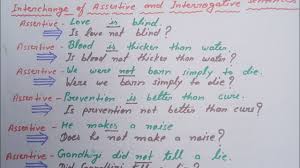 Interchange of Assertive and Interrogative Sentences
Assertive - Love is blind.
Is love not blind?
Assertive - Blood is thicker than water.
Is blood not thicker than water?
Assertive - We were not born simply to die.
Were we born simply to die?
Assertive - Prevention is better than cure.
Is prevention not better than cure?
Assertive - He makes a noise
Does he not make a noise?
Assertive - Gandhiji did not tell a lie.
Did Gandhiji tell a lie?